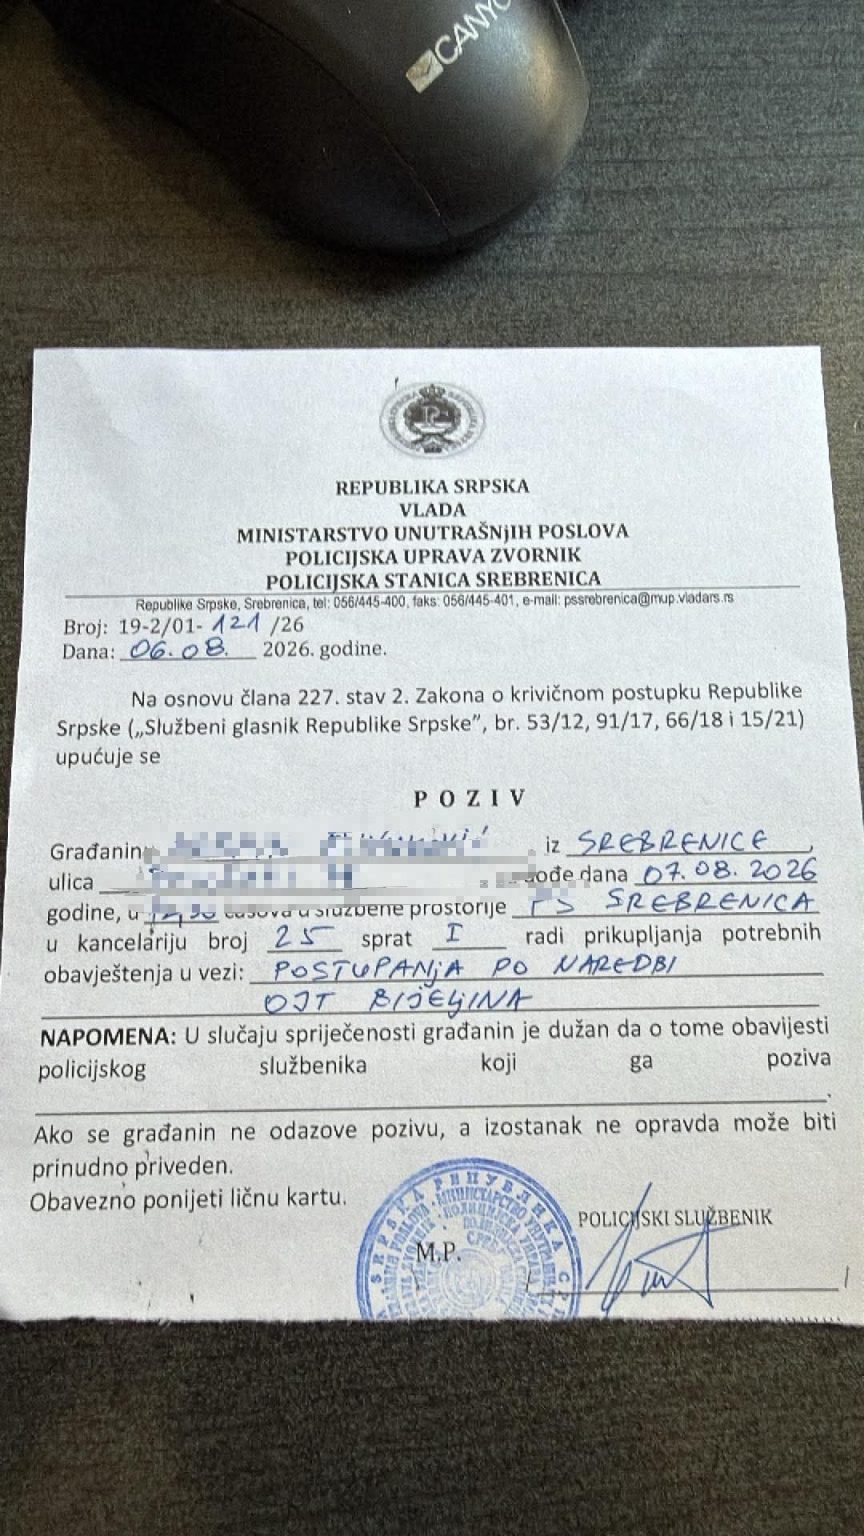 CANYO
REPUBLIKA SRPSKA
VLADA
MINISTARSTVO UNUTRAŠNjIH POSLOVA
POLICIJSKA UPRAVA ZVORNIK
POLICIJSKA STANICA SREBRENICA
Republike Srpske, Srebrenica, tel: 056/445-400, faks: 056/445-401, e-mail: pssrebrenica@mup.vladars.rs
Broj: 19-2/01-121/26
Dana: 06.08. 2026. godine.
Na osnovu člana 227. stav 2. Zakona o krivičnom postupku Republike
Srpske („Službeni glasnik Republike Srpske”, br. 53/12, 91/17, 66/18 i 15/21)
upućuje se
P O Z I V
Građanin iz SREBRENICE,
ulica dana 07.08.2026
godine, u službene prostorije PS SREBRENICA
u kancelariju broj 25 sprat I radi prikupljanja potrebnih
obavještenja u vezi: POSTUPANjA PO NAREDBI
OJT BIJELjINA
NAPOMENA: U slučaju spriječenosti građanin je dužan da o tome obavijesti
policijskog službenika koji ga poziva
.
Ako se građanin ne odazove pozivu, a izostanak ne opravda može biti
prinudno priveden.
Obavezno ponijeti ličnu kartu.
POLICIJSKI SLUŽBENIK
M.P.